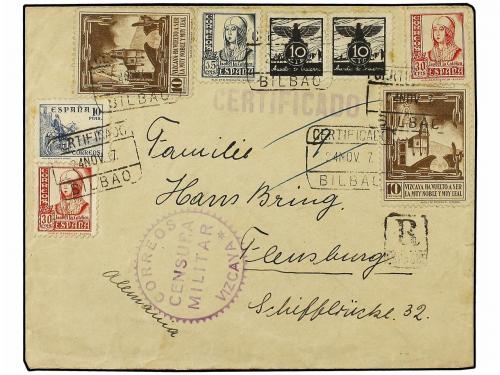 10
VIZCAYA HA VUELTO A SER
LA MUY NOBLE Y MUY LEAL
15
ESPAÑA
10
10
30
ESPAÑA
CERTIFICADO
BILBAO
BILBAO
ESPAÑA
10
CORREOS
CERTIFICADO
4 NOV
BILBAO
CERTIFICADO
4 NOV 7
BILBAO
10
VIZCAYA HA VUELTO A SER
LA MUY NOBLE Y MUY LEAL
30
ESPAÑA
Familie
Hans Bring.
Flensburg.
Schiffbrücke 32.
Alemania
R
CORREOS
CENSURA
MILITAR
VIZCAYA